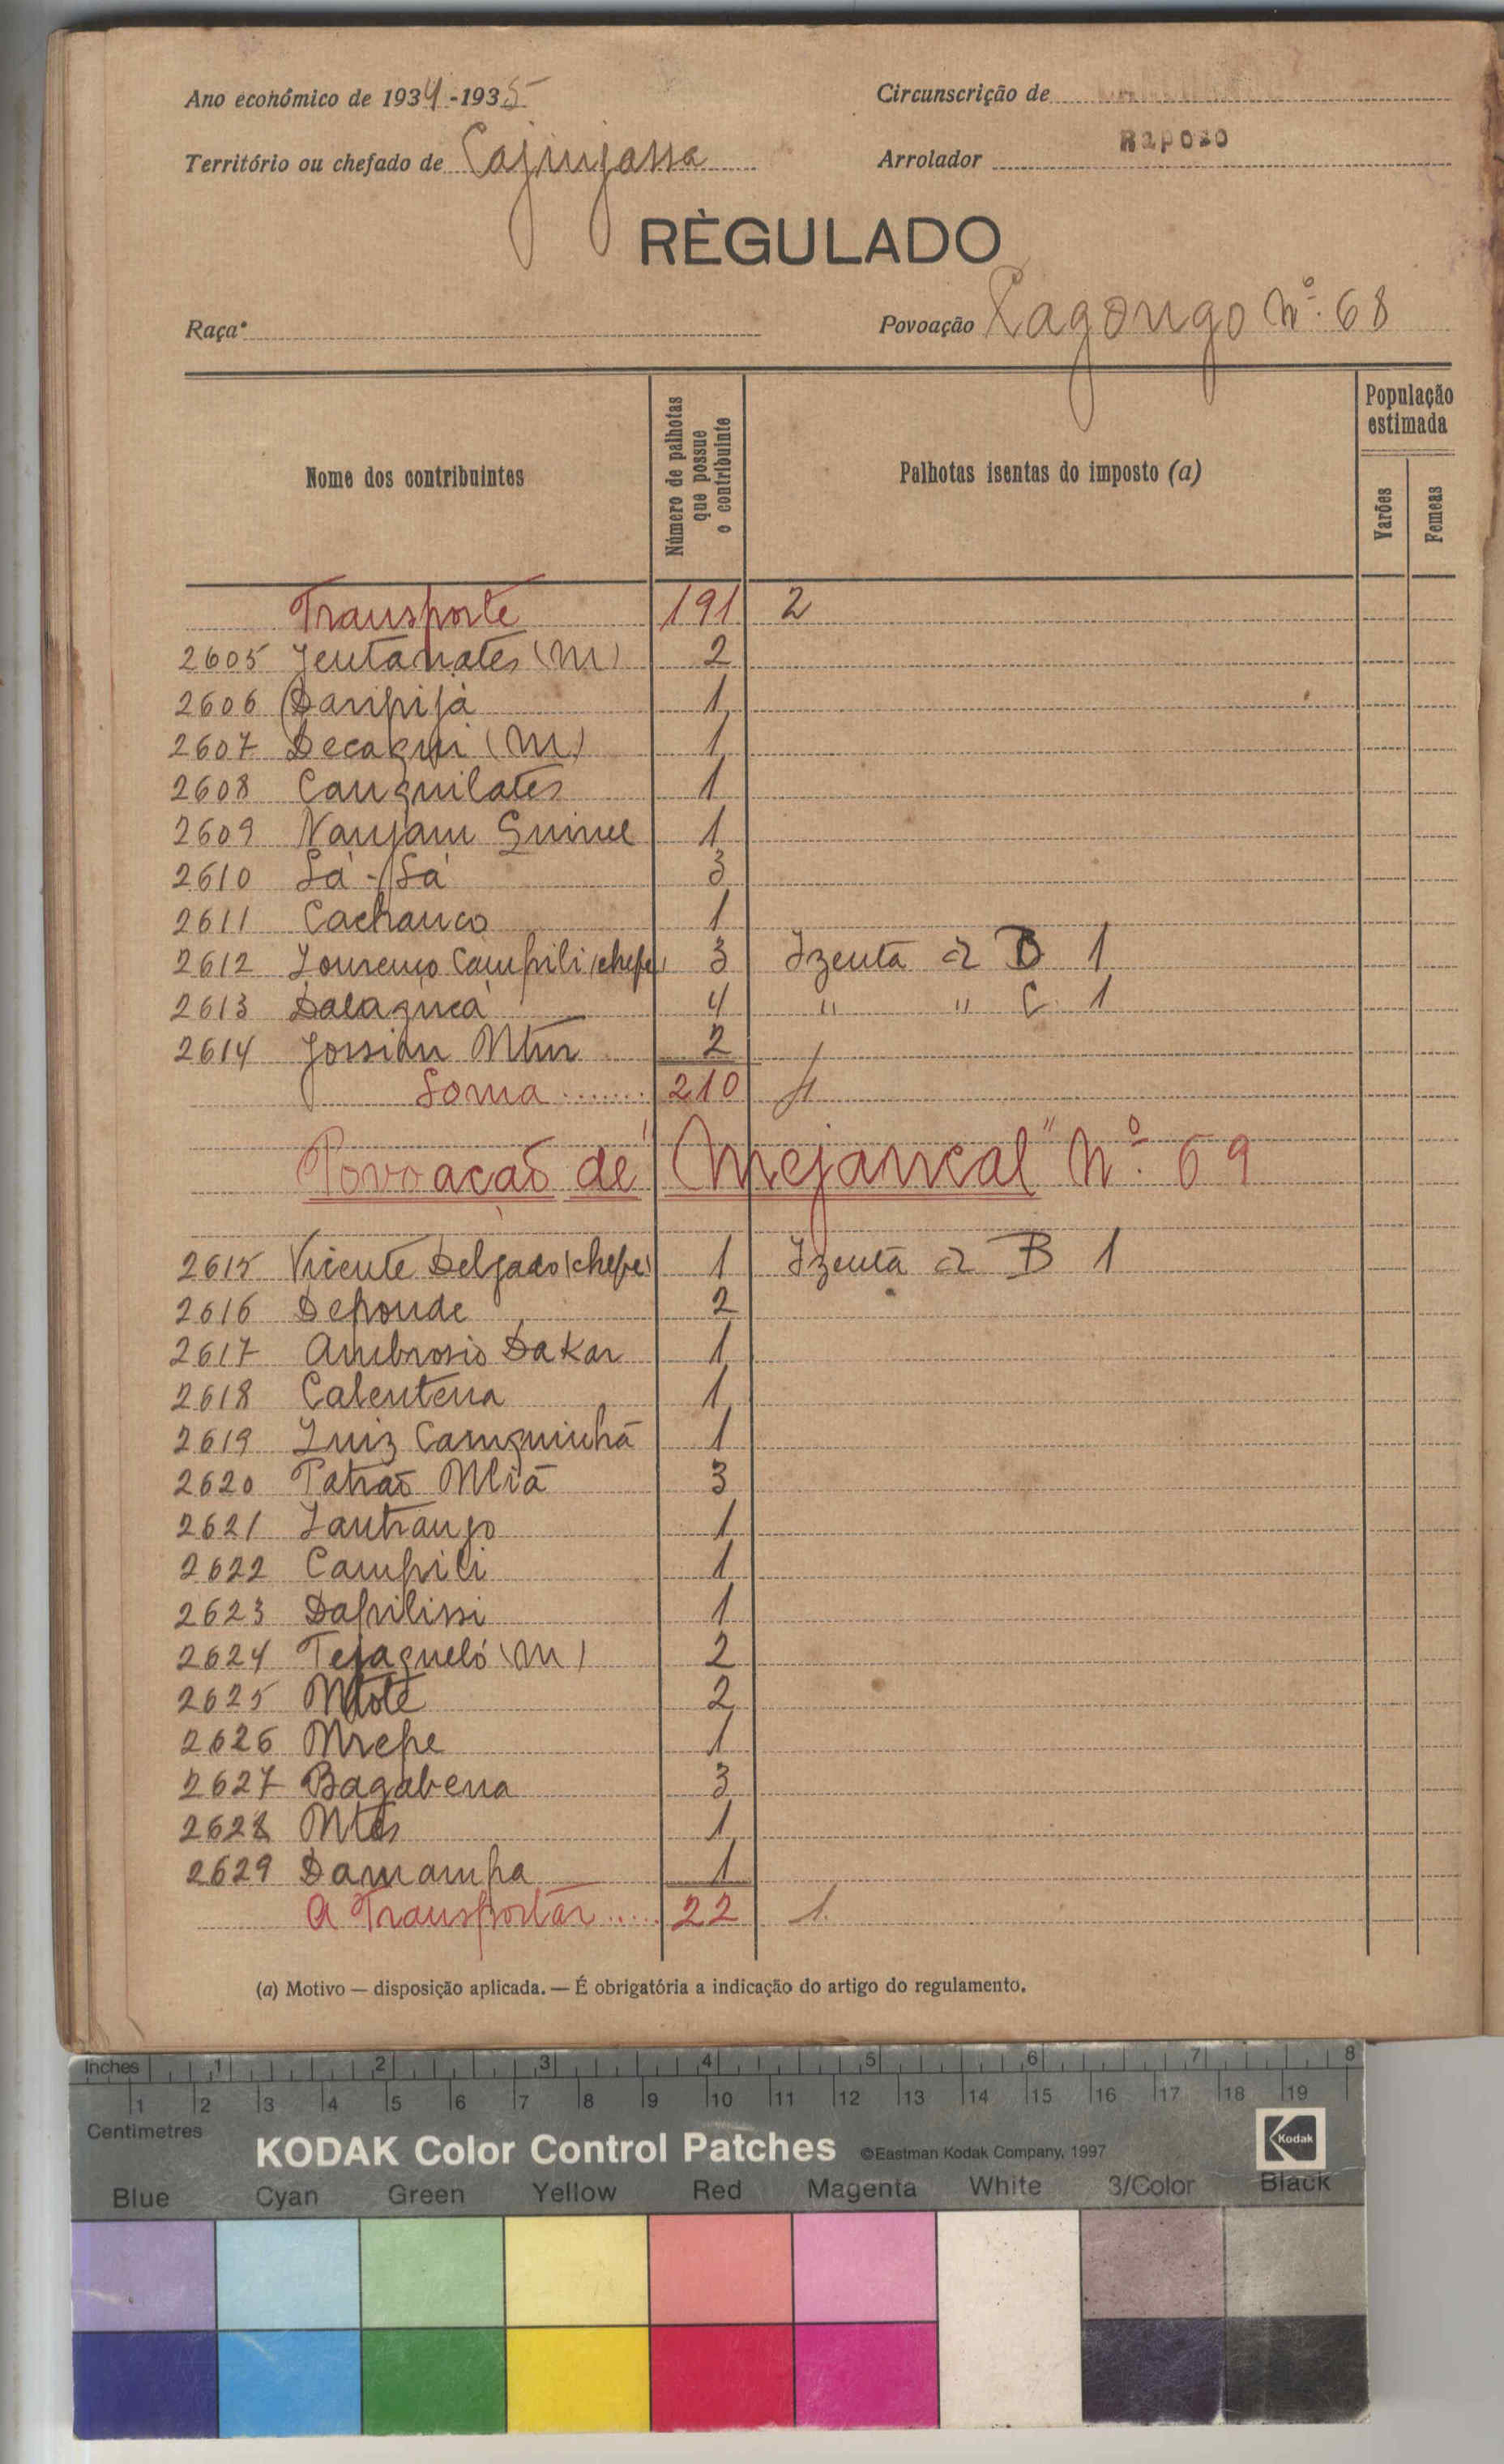 Ano económico de 1934-1935
Circunscrição de
Território ou chefado de Cajinjassa
Arrolador Raposo
RÈGULADO
Raça
Povoação Pagongo Nº. 68
Nome dos contribuintes
Número de palhotas que possue o contribuinte
Palhotas isentas do imposto (a)
População estimada
Varões
Femeas
Transporte 191 2
2605 Jentanates (M) 2
2606 Daripijá 1
2607 Decaqui (M) 1
2608 Canquilates 1
2609 Nanjam Guinel 1
2610 Sá-Sá 3
2611 Cachanco 1
2612 Lourenço Campili (chefe) 3 Izenta a B 1
2613 Dalaqueá 4 " " C. 1
2614 Jossian Ntin 2
Soma ....... 210 4
Povoação de "Mejancal" Nº. 69
2615 Vicente Delgado (chefe) 1 Izenta a B 1
2616 Deponde 2
2617 Ambrosio Dakar 1
2618 Calentena 1
2619 Luiz Canquinhã 1
2620 Patrão Mliã 3
2621 Lantrango 1
2622 Campili 1
2623 Dapilissi 1
2624 Tejagueló (M) 2
2625 2
2626 Mrepe 1
2627 Bagabena 3
2628 1
2629 Damampa 1
A Transportar ..... 22 1
(a) Motivo — disposição aplicada. — É obrigatória a indicação do artigo do regulamento.
Inches 1 2 3 4 5 6 7 8
1 2 3 4 5 6 7 8 9 10 11 12 13 14 15 16 17 18 19
Centimetres
KODAK Color Control Patches ©Eastman Kodak Company, 1997 Kodak
Blue Cyan Green Yellow Red Magenta White 3/Color Black